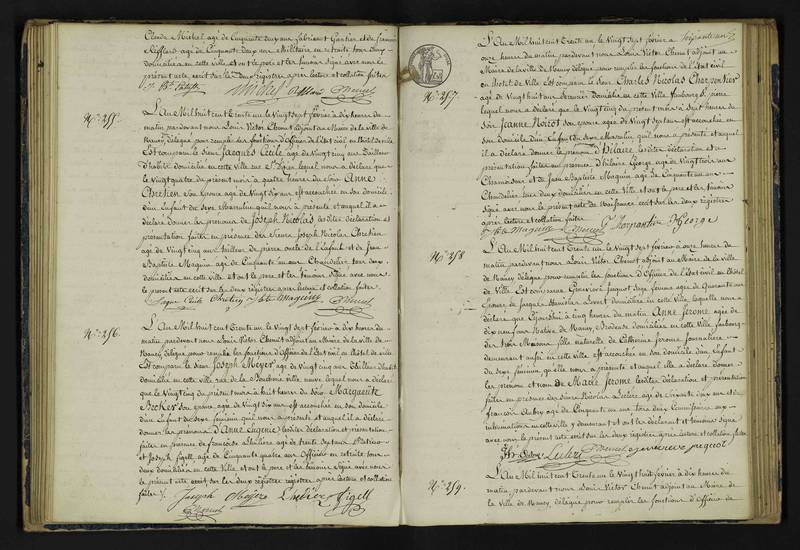 Claude Michel agé de Cinquante deux ans fabricant Gantier et de françois
agé de Cinquante deux ans Militaire en retraite tous deux
domiciliés en cette ville et ont le pere et les témoins signé avec nous le
présent acte, écrit sur les deux registres après lecture et collation faites
Michel
N.° 255.
L'An Mil huit cent Trente un le Vingt sept février à dix heures du
matin pardevant nous Louis Victor Chenut adjoint au Maire de la ville de
Nancy délégué pour remplir les fonctions d'Officier de l'Etat civil en l'hôtel de ville
Est comparu le Sieur Jacques Cécile agé de vingt cinq ans Tailleur
d'habits domicilié en cette ville rue St Dizier lequel nous a déclaré que
le vingt quatre du présent mois à quatre heures du soir Anne
Chretien son Epouse agée de Vingt six ans est accouchée en son domicile
d'un Enfant du sexe Masculin qu'il nous a présenté et auquel il a
déclaré donner les prénoms de Joseph Nicolas, lesdites déclaration et
présentation faites en présence des Sieurs Joseph Nicolas Chretien
agé de Vingt cinq ans Tailleur de pierre oncle de l'enfant et de Jean
Baptiste Maguin agé de Cinquante un ans Chandelier tous deux
domiciliés en cette ville et ont le pere et les témoins signé avec nous
le present acte écrit sur les deux registres après lecture et collation faites
Chretien J bte Maguin
N.° 256.
L'An Mil huit cent Trente un le Vingt Sept février à dix heures du
matin pardevant nous Louis Victor Chenut adjoint au Maire de la ville de
Nancy délégué pour remplir les fonctions d'Officier de l'Etat civil en l'hôtel de ville
Est comparu le Sieur Joseph Meyer agé de Vingt cinq ans Tailleur d'habits
domicilié en cette ville rue de la Boucherie ville neuve lequel nous a déclaré
que le Vingt cinq du présent mois à huit heures du soir Marguerite
Becker son Epouse agée de Vingt six ans est accouchée en son domicile
d'un Enfant du sexe féminin qu'il nous a présenté et auquel il a déclaré
donner les prénoms d'Anne Eugenie, lesdites déclaration et présentation
faites en présence de françois Lhuilière agé de trente sept ans
et Joseph figell agé de Cinquante quatre ans Officier en retraite tous
deux domiciliés en cette Ville et ont le pere et les témoins signé avec nous
le présent acte écrit sur les deux registres après lecture et collation
faites /.
Joseph Figell
N.° 257.
L'An Mil huit cent Trente un le Vingt Sept février à
onze heures du matin, pardevant nous Louis Victor Chenut adjoint au
Maire de la ville de Nancy délégué pour remplir les fonctions de l'Etat civil
en l'hotel de Ville Est comparu le Sieur Charles Nicolas Charpentier
agé de Vingt huit ans domicilié en cette Ville faubourg St pierre
lequel nous a déclaré que le Vingt cinq du présent mois à sept heures du
soir Jeanne Noirot son Epouse agée de Vingt sept ans est accouchée en
son domicile d'un Enfant du sexe Masculin qu'il nous a présenté et auquel
il a déclaré donner le prénom d'Hilaire, lesdites déclaration et
présentation faites en présence d'Hilaire George agé de Vingt trois ans
et de Jean Baptiste Maguin agé de Cinquante un ans
Chandelier tous deux domiciliés en cette ville et ont le pere et les témoins
signé avec nous le présent acte de Naissance écrit sur les deux registres
après lecture et collation faites
J bte Maguin Charpentier H George
N.° 258
L'An Mil huit cent Trente un le Vingt Sept février à onze heures du
matin pardevant nous Louis Victor Chenut adjoint au Maire de la ville
de Nancy délégué pour remplir les fonctions d'Officier de l'Etat civil en l'hôtel
de Ville Est comparue Genevieve Jacquot Sage femme agée de Quarante un
domiciliée en cette Ville laquelle nous a
déclaré que à cinq heures du matin Anne Jerome agée de
dix neuf ans Native de Nancy, Brodeuse domiciliée en cette ville faubourg
des trois Maisons fille naturelle de Catherine Jerome journalière
demeurant aussi en cette ville est accouchée en son domicile d'un Enfant
du sexe féminin qu'elle nous a présenté et auquel elle a déclaré donner
les prénom et nom de Marie Jerome lesdites déclaration et présentation
faites en présence des Sieurs Nicolas Leclerc agé de Soixante deux ans et
françois Aubry agé de Cinquante un ans tous deux Commissaires aux
inhumations en cette ville y demeurant et ont les déclarante et témoins signé
avec nous le présent acte écrit sur les deux registres après lecture et collation faites
Leclerc genevieve jacquot
N.° 259.
L'An Mil huit cent Trente un le Vingt huit février à dix heures du
matin, pardevant nous Louis Victor Chenut adjoint au Maire de
la Ville de Nancy, délégué pour remplir les fonctions d'Officier de